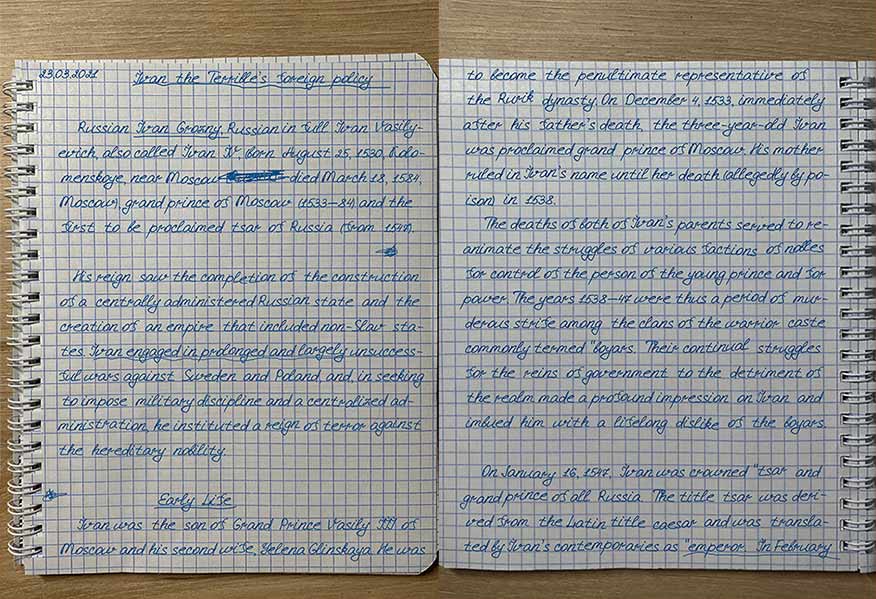 23.03.2021
Ivan the Terrible's foreign policy
Russian Ivan Grozny, Russian in full Ivan Vasily-
evich, also called Ivan IV. Born August 25, 1530, Kolo-
menskoye, near Moscow died March 18, 1584,
Moscow), grand prince of Moscow (1533–84) and the
first to be proclaimed tsar of Russia (from 1547).
His reign saw the completion of the construction
of a centrally administered Russian state and the
creation of an empire that included non-Slav sta-
tes. Ivan engaged in prolonged and largely unsuccess-
ful wars against Sweden and Poland, and, in seeking
to impose military discipline and a centralized ad-
ministration, he instituted a reign of terror against
the hereditary nobility.
Early Life
Ivan was the son of Grand Prince Vasily III of
Moscow and his second wife, Yelena Glinskaya. He was
to become the penultimate representative of
the Rurik dynasty. On December 4, 1533, immediately
after his father's death, the three-year-old Ivan
was proclaimed grand prince of Moscow. His mother
ruled in Ivan's name until her death (allegedly by po-
ison) in 1538.
The deaths of both of Ivan's parents served to re-
animate the struggles of various factions of nobles
for control of the person of the young prince and for
power. The years 1538–47 were thus a period of mur-
derous strife among the clans of the warrior caste
commonly termed "boyars. Their continual struggles
for the reins of government to the detriment of
the realm made a profound impression on Ivan and
imbued him with a lifelong dislike of the boyars.
On January 16, 1547, Ivan was crowned "tsar and
grand prince of all Russia. The title tsar was deri-
ved from the Latin title caesar and was transla-
ted by Ivan's contemporaries as "emperor. In February